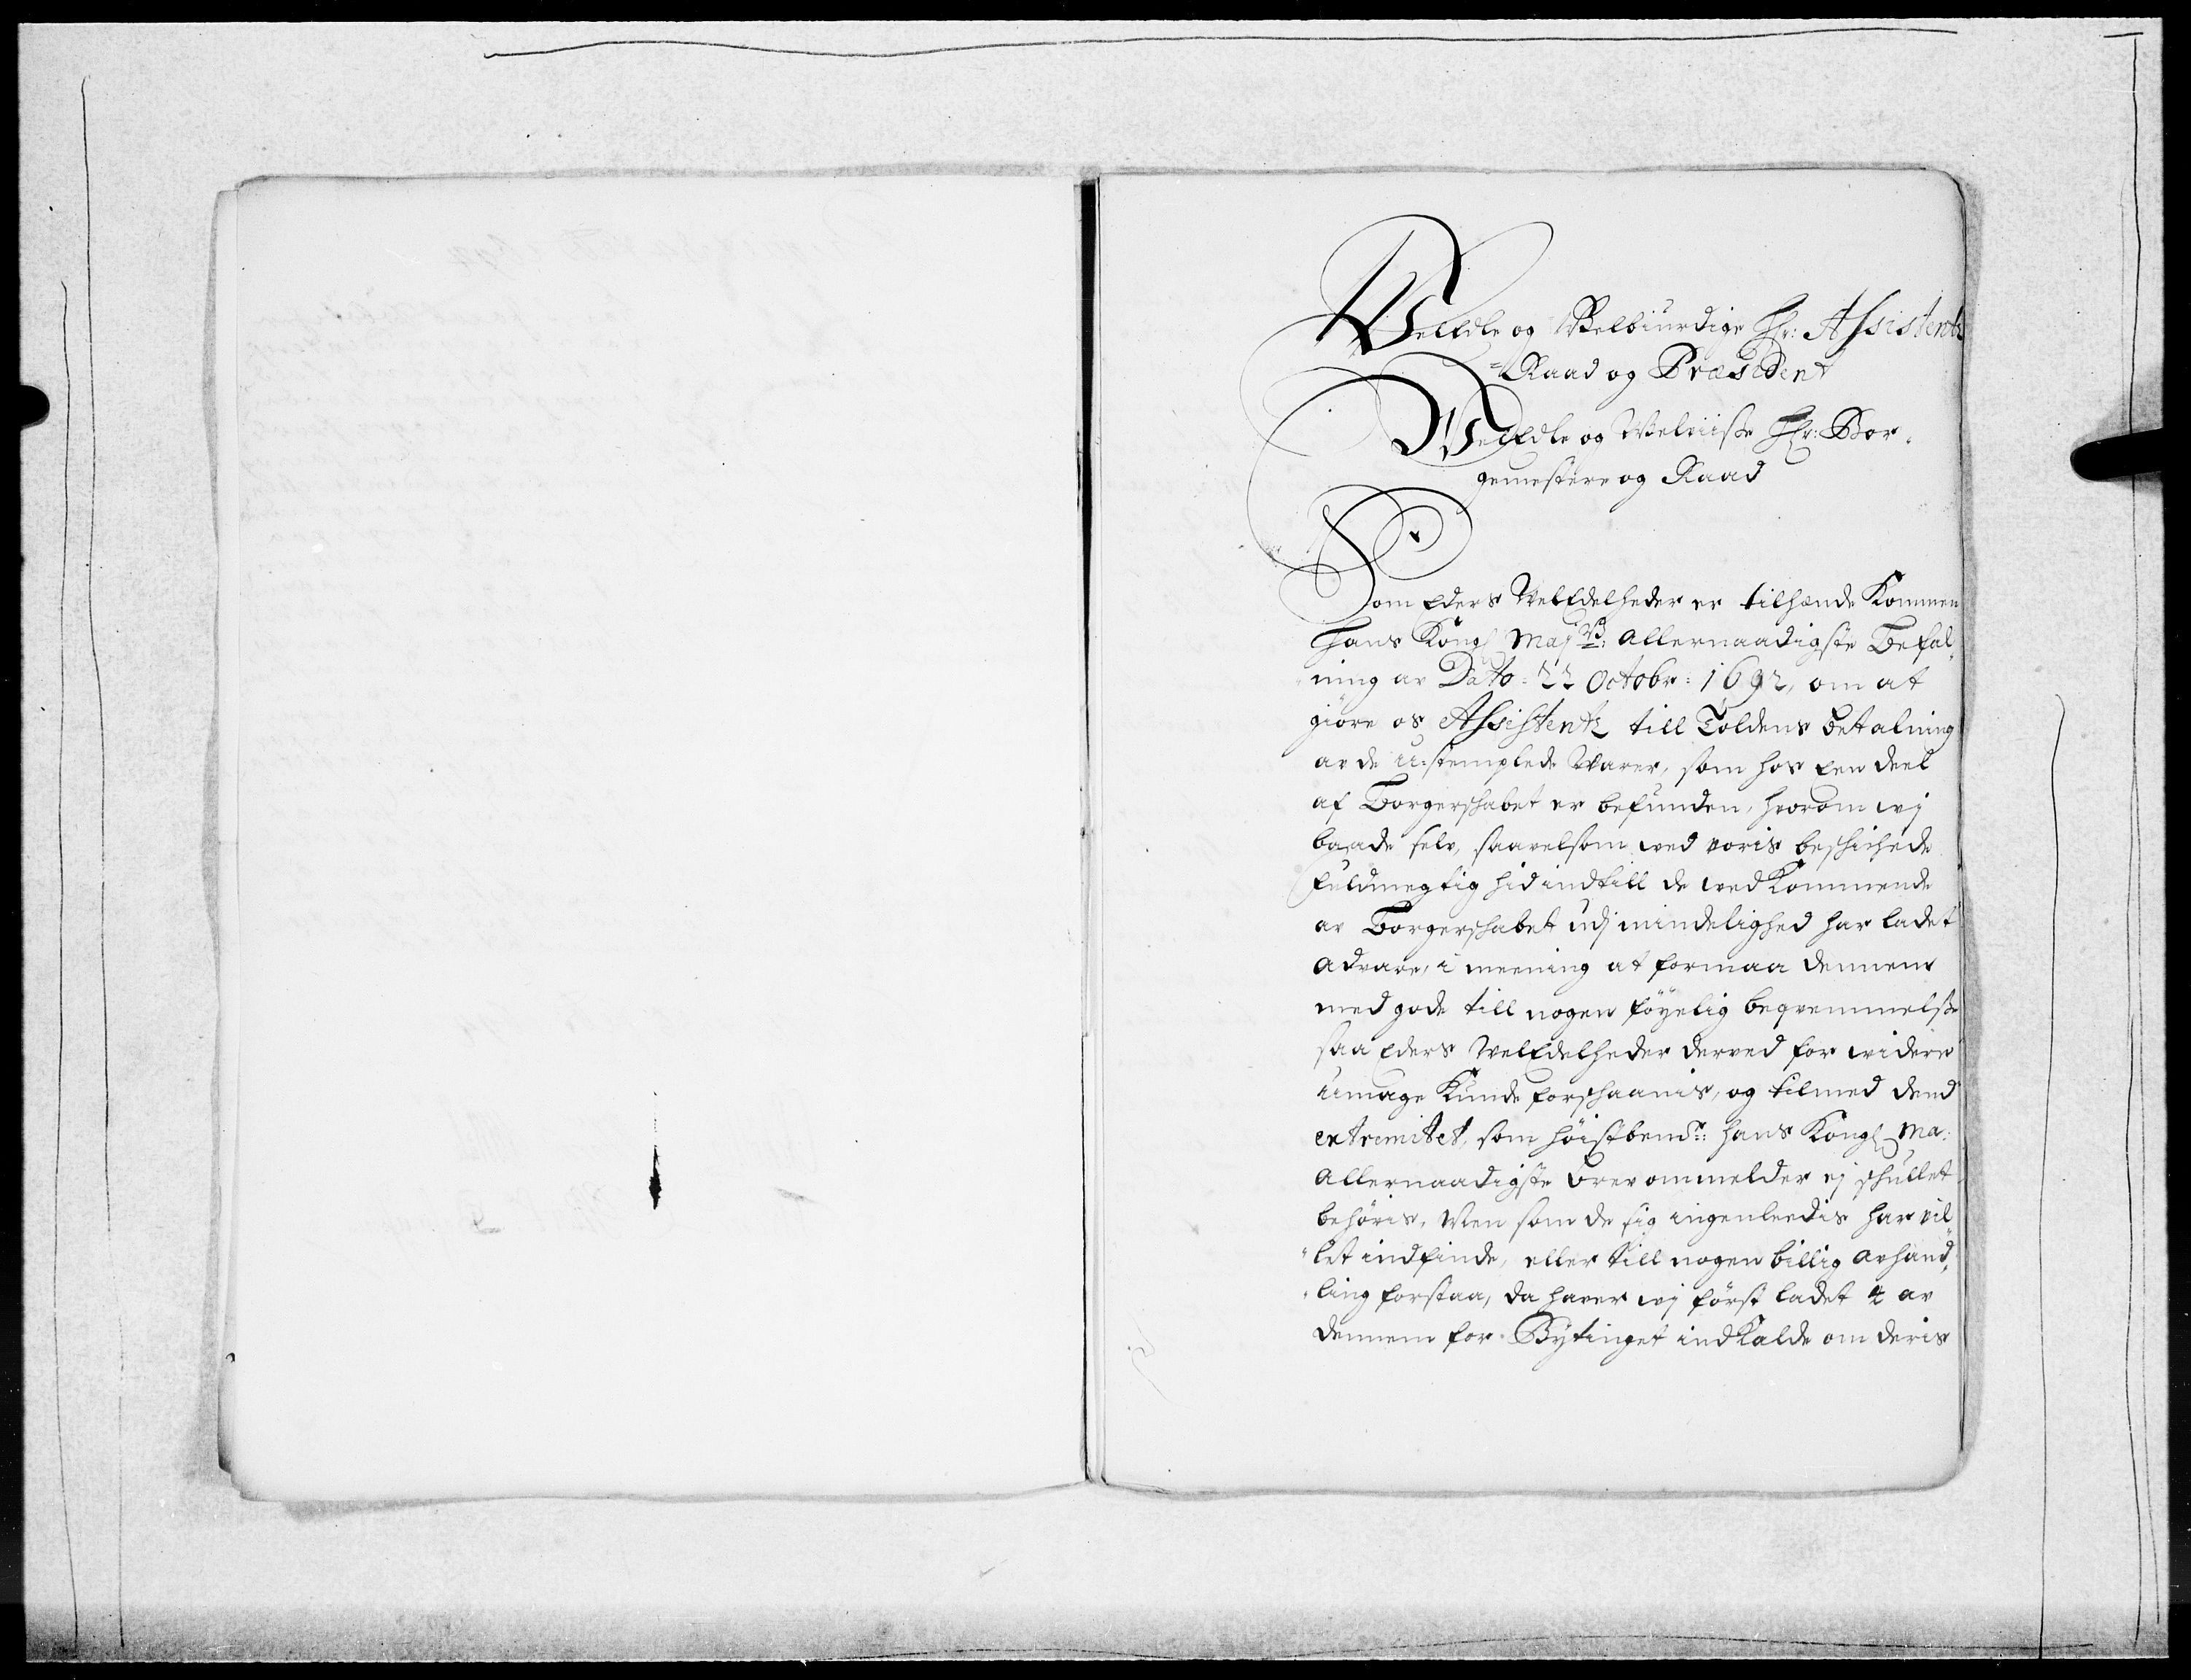 WelEdle og Velbiurdige Hr: Assistentz
=Raad og Præsident
WelEdle og Velviise Hr: Bor-
gemestere og Raad
Som Eders VelEdelheder er tilhænde Kommen
Hans Kongl May:ts: allernaadigste Befal-
ning av Dato: 22 Octobr: 1692, om at
giöre os Assistentz till Toldens betalning
av de u-stemplede Varer, som hos Een deel
af Borgerskabet er befunden, hvorom wj
baade selv, saavelsom ved voris beskichede
fuldmegtig hid indtill de ved Kommende
av Borgerskabet udj mindelighed har ladet
advare, i meening at formaa dennem
med gode till nogen föyelig beqvemmelse
saa Eders VelEdelheder derved for widere
umage Kunde forskaanis, og tilmed dend
extremitet, som höistbemte: Hans Kongl Ma:
allernaadigste brev ommelder ej skullet
behöris, Men som de sig ingenleedis har vil-
let indfinde, eller till nogen billig avhand-
ling forstaa, da haver wj först ladet 4 av
dennem for Bytinget indkalde om deris